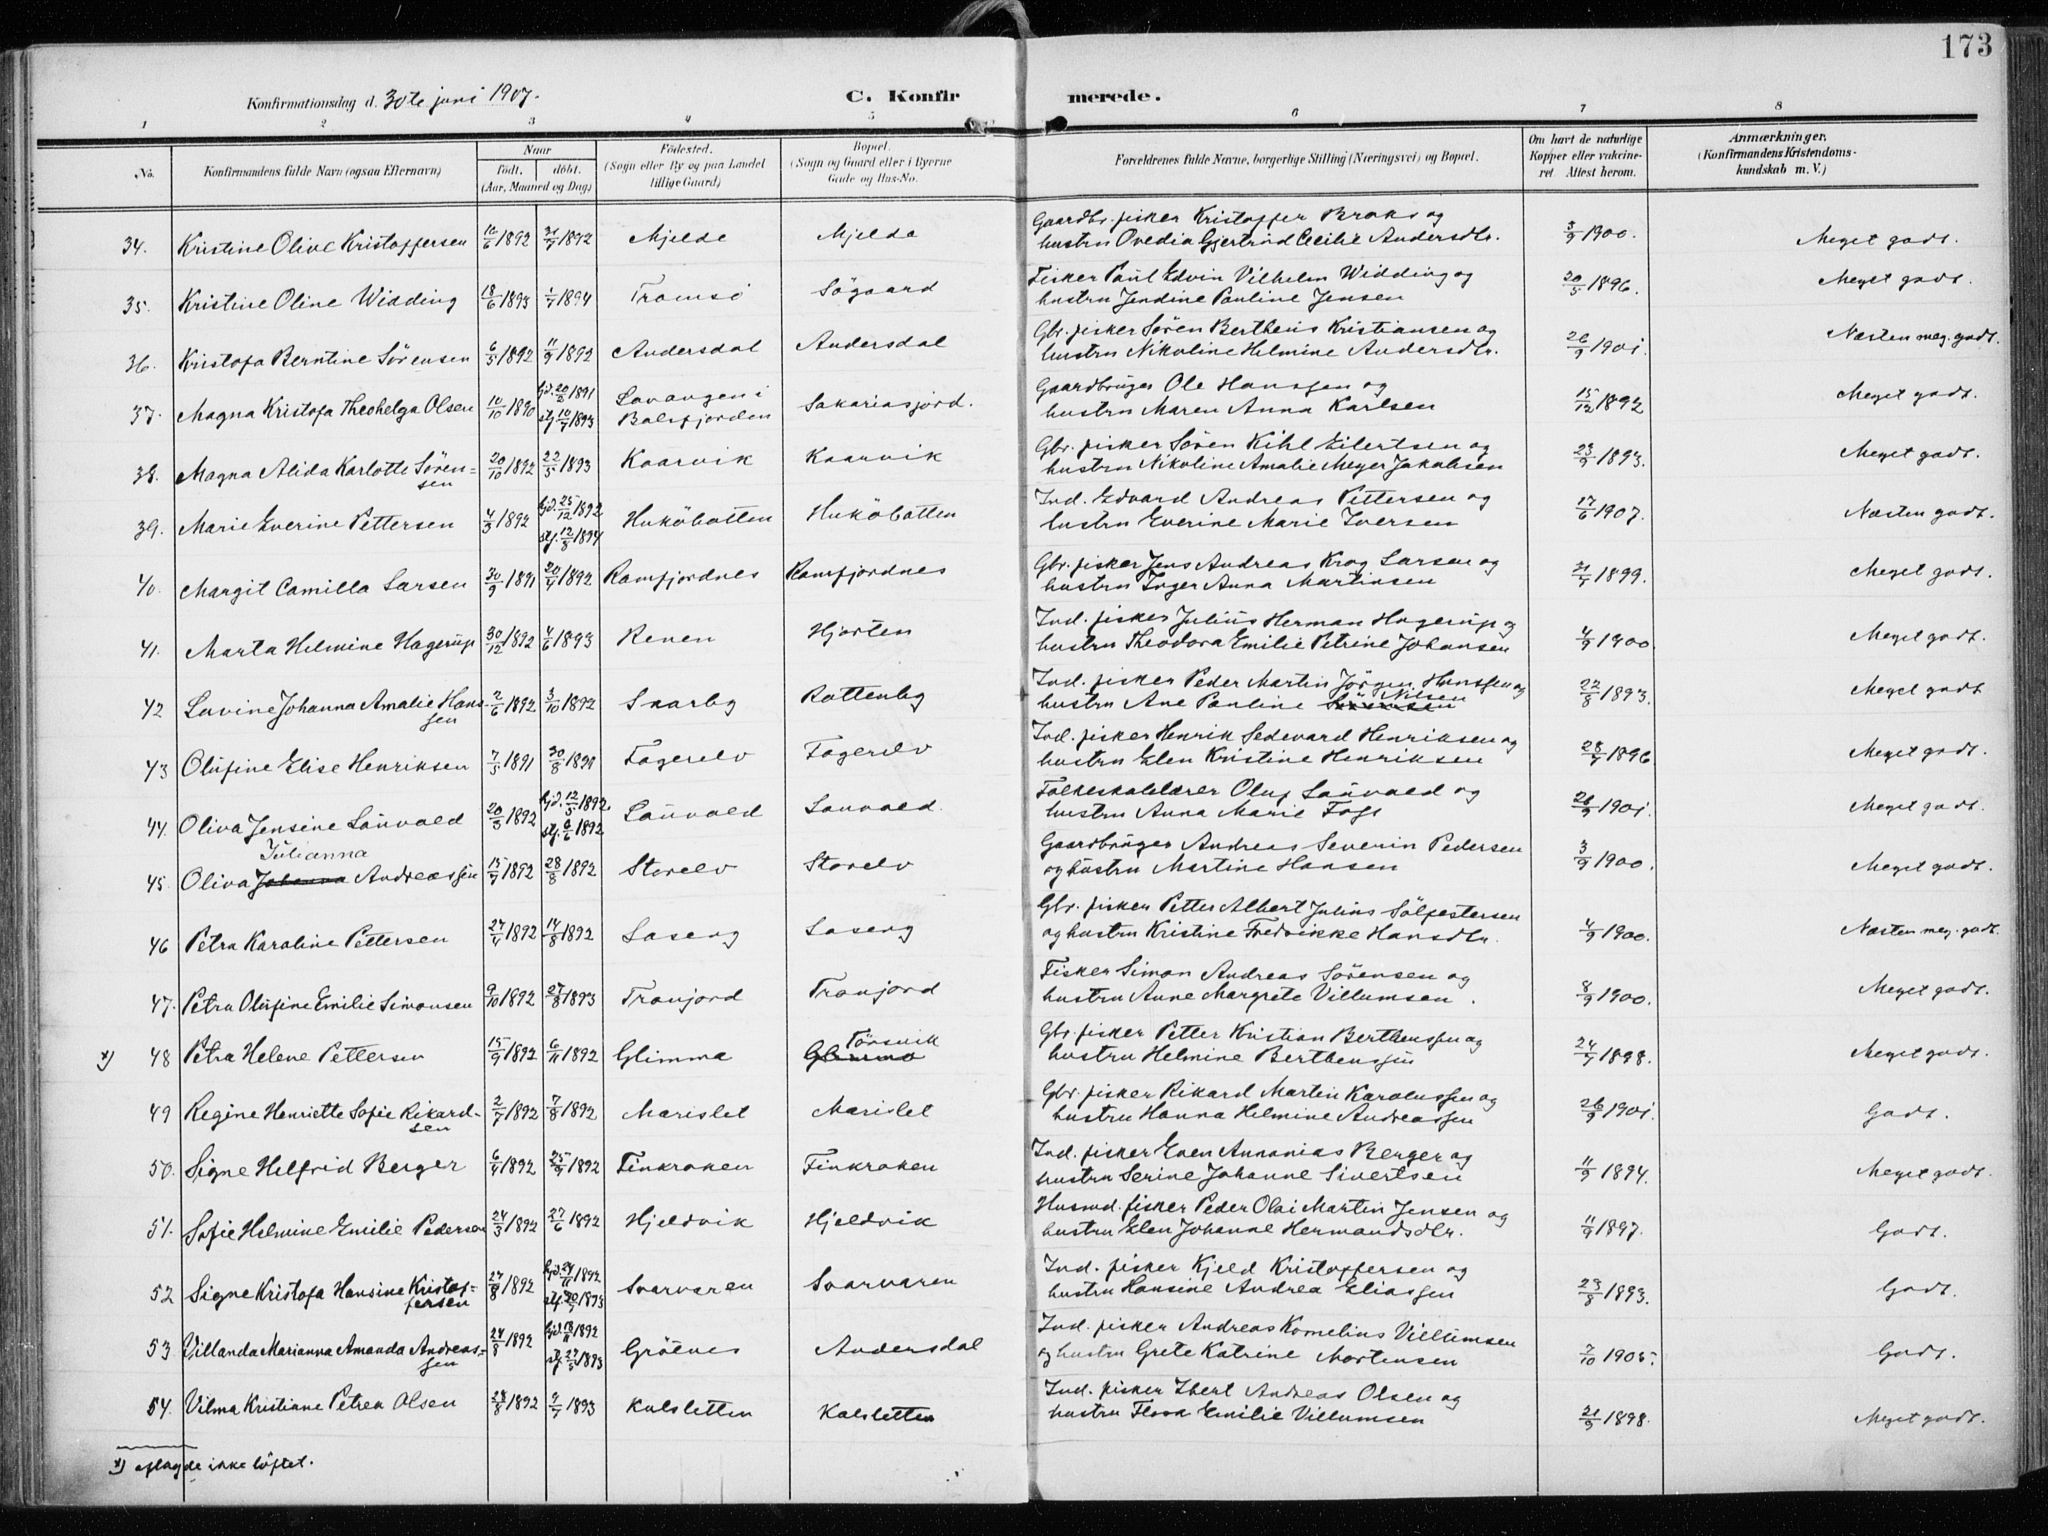 173
Konfirmationsdag d. 30te juni 1907. C. Konfirmerede.
1 2 3 4 5 6 7 8
No. Konfirmandens fulde Navn (ogsaa Efternavn) Naar födt, döbt. (Aar, Maaned og Dag) Födested. (Sogn eller By og paa Landet tillige Gaard) Bopæl. (Sogn og Gaard eller i Byerne Gade og Hus-No. Forældrenes fulde Navne, borgerlige Stilling (Næringsvei) og Bopæl. Om havt de naturlige Kopper eller vakcineret Attest herom. Anmærkninger. (Konfirmandens Kristendomskundskab m. V.)
34. Kristine Olive Kristoffersen 1892 1892 Mjelde Mjelde Gaardbr. fisker Kristoffer Braks og
hustru Ovedia Gjertrud Cecilie Andersdtr. 3/9 1900. Meget godt.
35. Kristine Oline Widding 18/6 1893 1/7 1894 Tromsö Sögaard Fisker Paul Edvin Vilhelm Widding og
hustru Jendine Pauline Jensen 20/5 1896. Meget godt.
36. Kristofa Berntine Sørensen 6/5 1892 11/9 1892 Andersdal Andersdal Gbr. fisker Søren Bertheus Kristiansen og
hustru Nikoline Helmine Andersdtr. 26/9 1901. Næsten meg. godt.
37. Magna Kristofa Theohelga Olsen 10/10 1890 hjd. 20/2 1891 stf. 10/7 1893 Lavangen i Balsfjorden Sakariasjord. Gaardbruger Ole Hanssen og
hustru Maren Anna Karlsen 15/12 1892 Meget godt.
38. Magna Alida Karlotte Sørensen 20/10 1892 22/5 1893 Kaarvik Kaarvik Gbr. fisker Søren Kihl Eilertsen og
hustru Nikoline Amalie Meyer Jakobsen 23/9 1893. Meget godt.
39. Marie Everine Pettersen 4/9 1892 hjd. 25/12 1892 stf. 12/8 1894 Huköbotten Huköbotten Ind. Edvard Andreas Pettersen og
hustru Everine Marie Iversen 17/6 1907. Næsten godt.
40. Margit Camilla Larsen 30/9 1891 20/4 1892 Ramfjordnes Ramfjordnes Gbr. fisker Jens Andreas Krog Larsen og
hustru Inger Anna Martinsen 1899. Meget godt.
41. Marta Helmine Hagerup 30/12 1892 4/6 1893 Renen Hjorten Ind. fisker Julius Herman Hagerup og
hustru Theodora Emilie Petrine Johansen 4/9 1900 Meget godt.
42 Lavine Johanna Amalie Hanssen 2/6 1892 3/10 1892 Skarby Rottenby Ind. fisker Peder Martin Jörgen Hanssen og
hustru Ane Pauline Nilsen 22/8 1893. Meget godt
43 Olufine Elise Henriksen 7/5 1891 30/8 1891 Fagerelv Fagerelv Ind. fisker Henrik Sedevard Henriksen og
hustru Elen Kristine Henriksen 1896 Meget godt.
44. Oliva Jensine Lauvold 20/3 1892 hjd. 12/5 1892 stf. 1892 Lauvold Lauvold. Folkeskolelærer Oluf Lauvold og
hustru Anna Marie Fogt 26/9 1901. Meget godt.
45. Oliva Johanna Julianna Andreassen 15/7 1892 28/8 1892 Storelv Storelv Gaardbruger Andreas Severin Pedersen
og hustru Martine Hansen 3/9 1900. Meget godt.
46 Petra Karoline Pettersen 27/4 1892 14/8 1892 Laseng Laseng Gbr. fisker Petter Albert Julius Sölfestersen
og hustru Kristine Fredrikke Hansdtr. 4/9 1900. Næsten meg. godt.
47. Petra Olufine Emilie Simonsen 9/10 1892 27/8 1893 Tronjord Tronjord Fisker Simon Andreas Sørensen og
hustru Anne Margrete Villumsen. 8/9 1900. Meget godt.
x) 48 Petra Helene Pettersen 15/9 1892 6/11 1892 Glimma Glimma Törsvik Gbr. fisker Petter Kristian Berthenssen og
hustru Helmine Berthenssen 1898. Meget godt.
49 Regine Henriette Sofie Rikardsen 2/7 1892 7/8 1892 Marislet Marislet Gbr. fisker Rikard Martin Karolussen og
hustru Hanna Helmine Andreassen 26/9 1901. Godt.
50. Signe Helfrid Berger 6/4 1892 25/9 1892 Finkroken Finkroken Ind. fisker Even Annanias Berger og
hustru Serine Johanne Sivertsen 11/9 1894. Meget godt.
51. Sofie Helmine Emilie Pedersen 24/3 1892 27/6 1892 Hjeldvik Hjeldvik Husmd. fisker Peder Olai Martin Jensen og
hustru Elen Johanne Hermandsdtr. 11/9 1897. Godt.
52 Signe Kristofa Hansine Kristoffersen 1892 hjd. 24/11 1892 stf. 1893 Svarvaren Svarvaren Ind. fisker Kjeld Kristoffersen og
hustru Hansine Andrea Eliassen 23/8 1893. Godt.
53. Villanda Marianna Amanda Andreassen 1892 hjd. 18/11 1892 stf. 1893 Gröenes Andersdal Ind. fisker Andreas Kornelius Villumsen
og hustru Grete Katrine Mortensen 7/10 1905. Godt.
54. Vilma Kristiane Petrea Olsen 28/8 1892 9/7 1893 Kalsletten Kalsletten Ind. fisker Ebert Andreas Olsen og
hustru Flora Emilie Villumsen 21/9 1898. Meget godt.
x) aflagde ikke löftet.